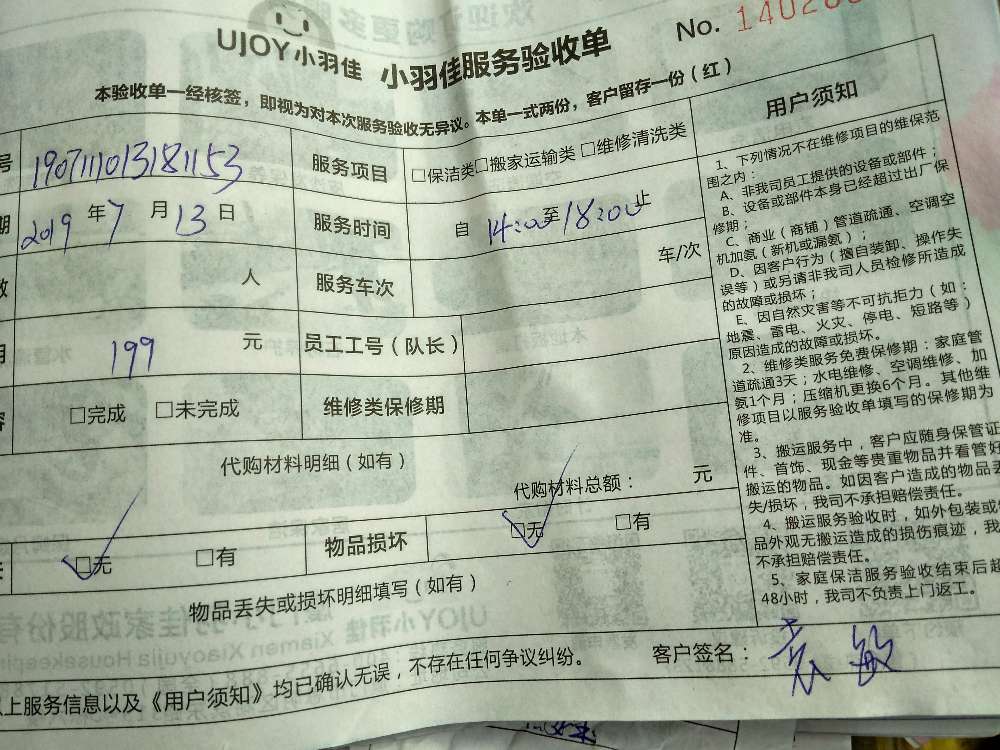 UJOY小羽佳 小羽佳服务验收单 No. 140200
本验收单一经核签，即视为对本次服务验收无异议。本单一式两份，客户留存一份（红）
号 190711013181153 服务项目 □保洁类□搬家运输类 □维修清洗类
期 2019 年 7 月 13 日 服务时间 自 14:00 至 18:00 止
数 人 服务车次 车/次
用 199 元 员工工号（队长）
容 □完成 □未完成 维修类保修期
代购材料明细（如有）
代购材料总额： 元
失 □无 □有 物品损坏 □无 □有
物品丢失或损坏明细填写（如有）
以上服务信息以及《用户须知》均已确认无误，不存在任何争议纠纷。 客户签名： 袁敏
用户须知
1、下列情况不在维修项目的维保范
围之内：
A、非我司员工提供的设备或部件；
B、设备或部件本身已经超过出厂保
修期；
C、商业（商铺）管道疏通、空调空
机加氨（新机或漏氨）；
D、因客户行为（擅自装卸、操作失
误等）或另请非我司人员检修所造成
的故障或损坏；
E、因自然灾害等不可抗拒力（如：
地震、雷电、火灾、停电、短路等）
原因造成的故障或损坏。
2、维修类服务免费保修期：家庭管
道疏通3天；水电维修、空调维修、加
氨1个月；压缩机更换6个月。其他维
修项目以服务验收单填写的保修期为
准。
3、搬运服务中，客户应随身保管证
件、首饰、现金等贵重物品并看管好
搬运的物品。如因客户造成的物品丢
失/损坏，我司不承担赔偿责任。
4、搬运服务验收时，如外包装或物
品外观无搬运造成的损伤痕迹，我
不承担赔偿责任。
5、家庭保洁服务验收结束后超
48小时，我司不负责上门返工。